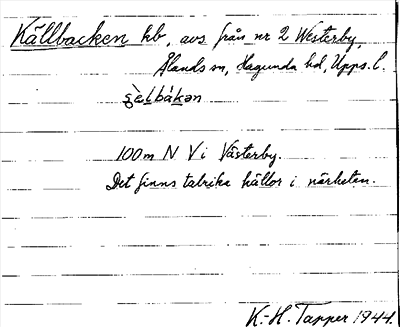 Källbacken hb, avs från nr 2 Westerby,
Ålands sn, Hagunda hd, Upps. l.
s̨èlbákən
100 m N V i Västerby.
Det finns talrika källor i närheten.
K.-H. Tapper 1944.